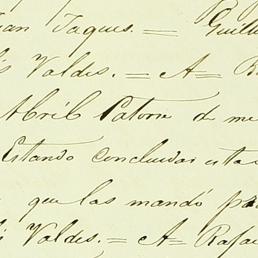 Juan Jaques. = Guille
is Valdes. = A = R
Abril Catorce de me
Estando concluidas esta
que las mandó pa
is Valdes. = A = Rafae